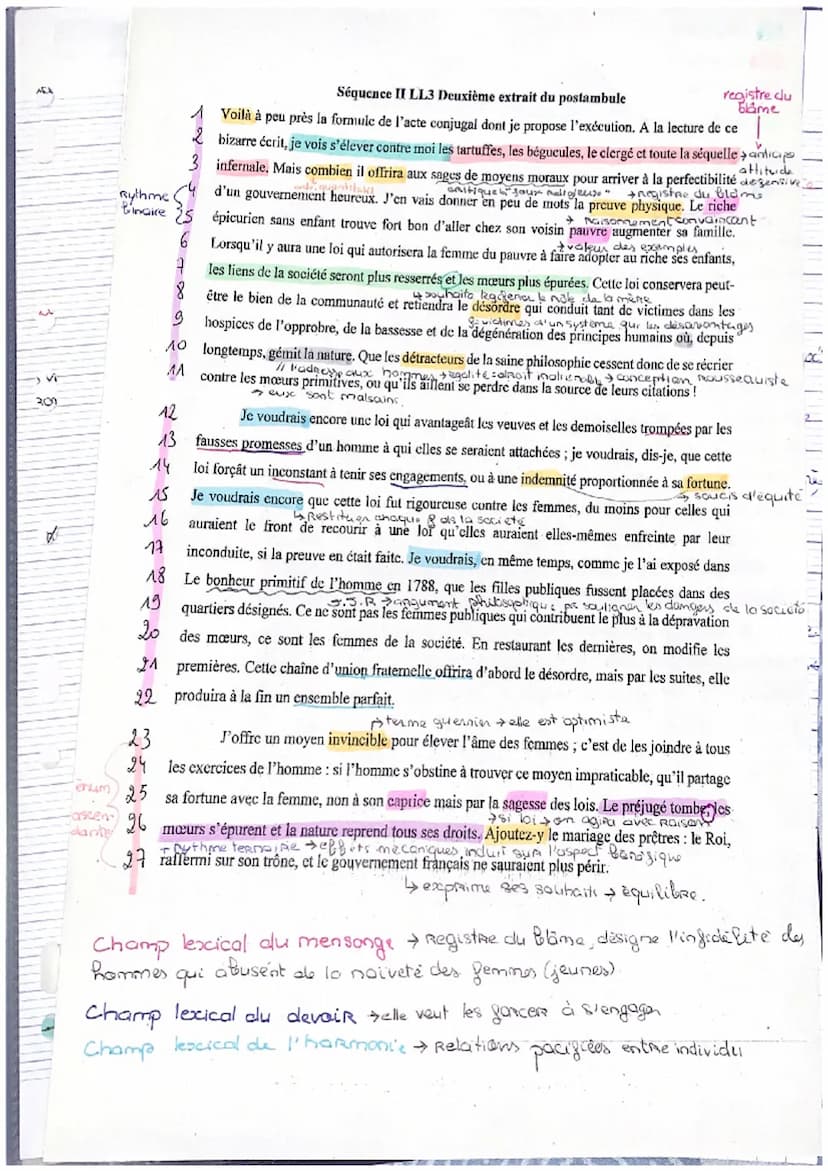 Séquence II LL3 Deuxième extrait du postambule
registre du
blâme
1 Voilà à peu près la formule de l'acte conjugal dont je propose l'exécution. A la lecture de ce
2 bizarre écrit, je vois s'élever contre moi les tartuffes, les bégueules, le clergé et toute la séquelle → anticipe
attitude
défensive
3 infernale. Mais combien il offrira aux sages de moyens moraux pour arriver à la perfectibilité
critique le "faux religieuse" → registre du blâme
Rythme
binaire
4 d'un gouvernement heureux. J'en vais donner en peu de mots la preuve physique. Le riche
→ raisonnement convaincant
5 épicurien sans enfant trouve fort bon d'aller chez son voisin pauvre augmenter sa famille.
→ valeur des exemples
6 Lorsqu'il y aura une loi qui autorisera la femme du pauvre à faire adopter au riche ses enfants,
7 les liens de la société seront plus resserrés et les mœurs plus épurées. Cette loi conservera peut-
↳ souhaite le rôle de la mère
8 être le bien de la communauté et retiendra le désordre qui conduit tant de victimes dans les
victimes d'un système qui les désavantages
9 hospices de l'opprobre, de la bassesse et de la dégénération des principes humains où, depuis
10 longtemps, gémit la nature. Que les détracteurs de la saine philosophie cessent donc de se récrier
// l'adresse aux hommes → égalité = droit inaliénable → conception rousseauiste
11 contre les mœurs primitives, ou qu'ils aillent se perdre dans la source de leurs citations !
→ eux sont malsains.
12 Je voudrais encore une loi qui avantageât les veuves et les demoiselles trompées par les
13 fausses promesses d'un homme à qui elles se seraient attachées ; je voudrais, dis-je, que cette
14 loi forçât un inconstant à tenir ses engagements, ou à une indemnité proportionnée à sa fortune.
→ soucis d'équité
15 Je voudrais encore que cette loi fut rigoureuse contre les femmes, du moins pour celles qui
↳ Restitution chaque ds la société
16 auraient le front de recourir à une loi qu'elles auraient elles-mêmes enfreinte par leur
17 inconduite, si la preuve en était faite. Je voudrais, en même temps, comme je l'ai exposé dans
18 Le bonheur primitif de l'homme en 1788, que les filles publiques fussent placées dans des
J.J.R → argument philosophique pr souligner les dangers de la société
19 quartiers désignés. Ce ne sont pas les femmes publiques qui contribuent le plus à la dépravation
20 des mœurs, ce sont les femmes de la société. En restaurant les dernières, on modifie les
21 premières. Cette chaîne d'union fraternelle offrira d'abord le désordre, mais par les suites, elle
22 produira à la fin un ensemble parfait.
→ terme guerrier → elle est optimiste
23 J'offre un moyen invincible pour élever l'âme des femmes ; c'est de les joindre à tous
24 les exercices de l'homme : si l'homme s'obstine à trouver ce moyen impraticable, qu'il partage
énum
ascen-
dante
25 sa fortune avec la femme, non à son caprice mais par la sagesse des lois. Le préjugé tombe, les
→ si loi → on agira avec raison
26 mœurs s'épurent et la nature reprend tous ses droits. Ajoutez-y le mariage des prêtres : le Roi,
+ rythme ternaire → effets mécaniques induit sur l'aspect bénéfique
27 raffermi sur son trône, et le gouvernement français ne sauraient plus périr.
↳ exprime ses souhaits → équilibre.
Champ lexical du mensonge → registre du blâme, désigne l'infidélité des
hommes qui abusent de la naïveté des femmes (jeunes)
Champ lexical du devoir → elle veut les forcer à s'engager
Champ lexical de l'harmonie → relations pacifiées entre individu